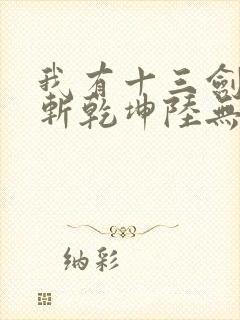 我有十三劍
斬乾坤陸無
纳彩